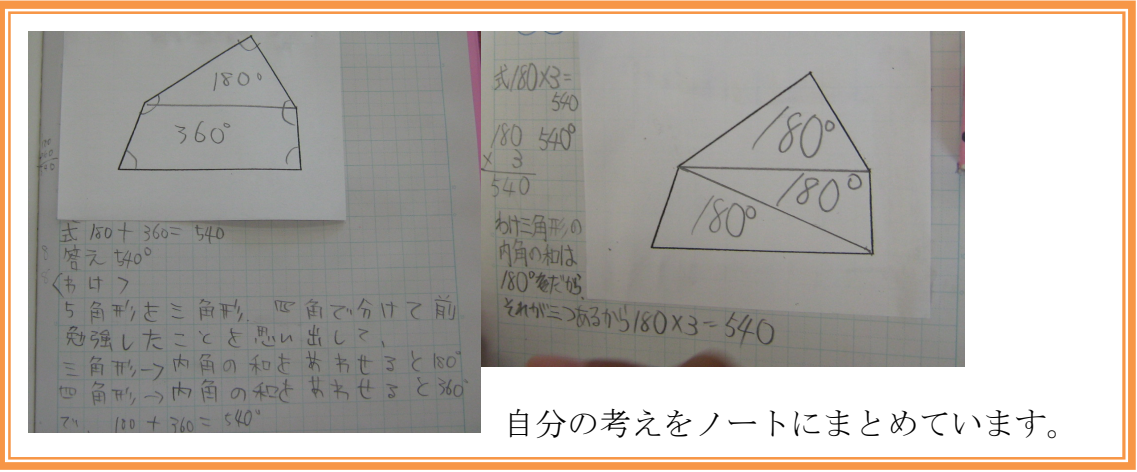 180°
360°
式 180+360=540
答え 540°
〈わけ〉
5角形を三角形、四角で分けて前
勉強したことを思い出して、
三角形→内角の和をあわせると180°
四角形→内角の和をあわせると360°
で、180+360=540°
式180×3=
540
180 540°
× 3
540
わけ三角形の
内角の和は
180°だから
それが三つあるから180×3=540
180°
180°
180°
自分の考えをノートにまとめています。